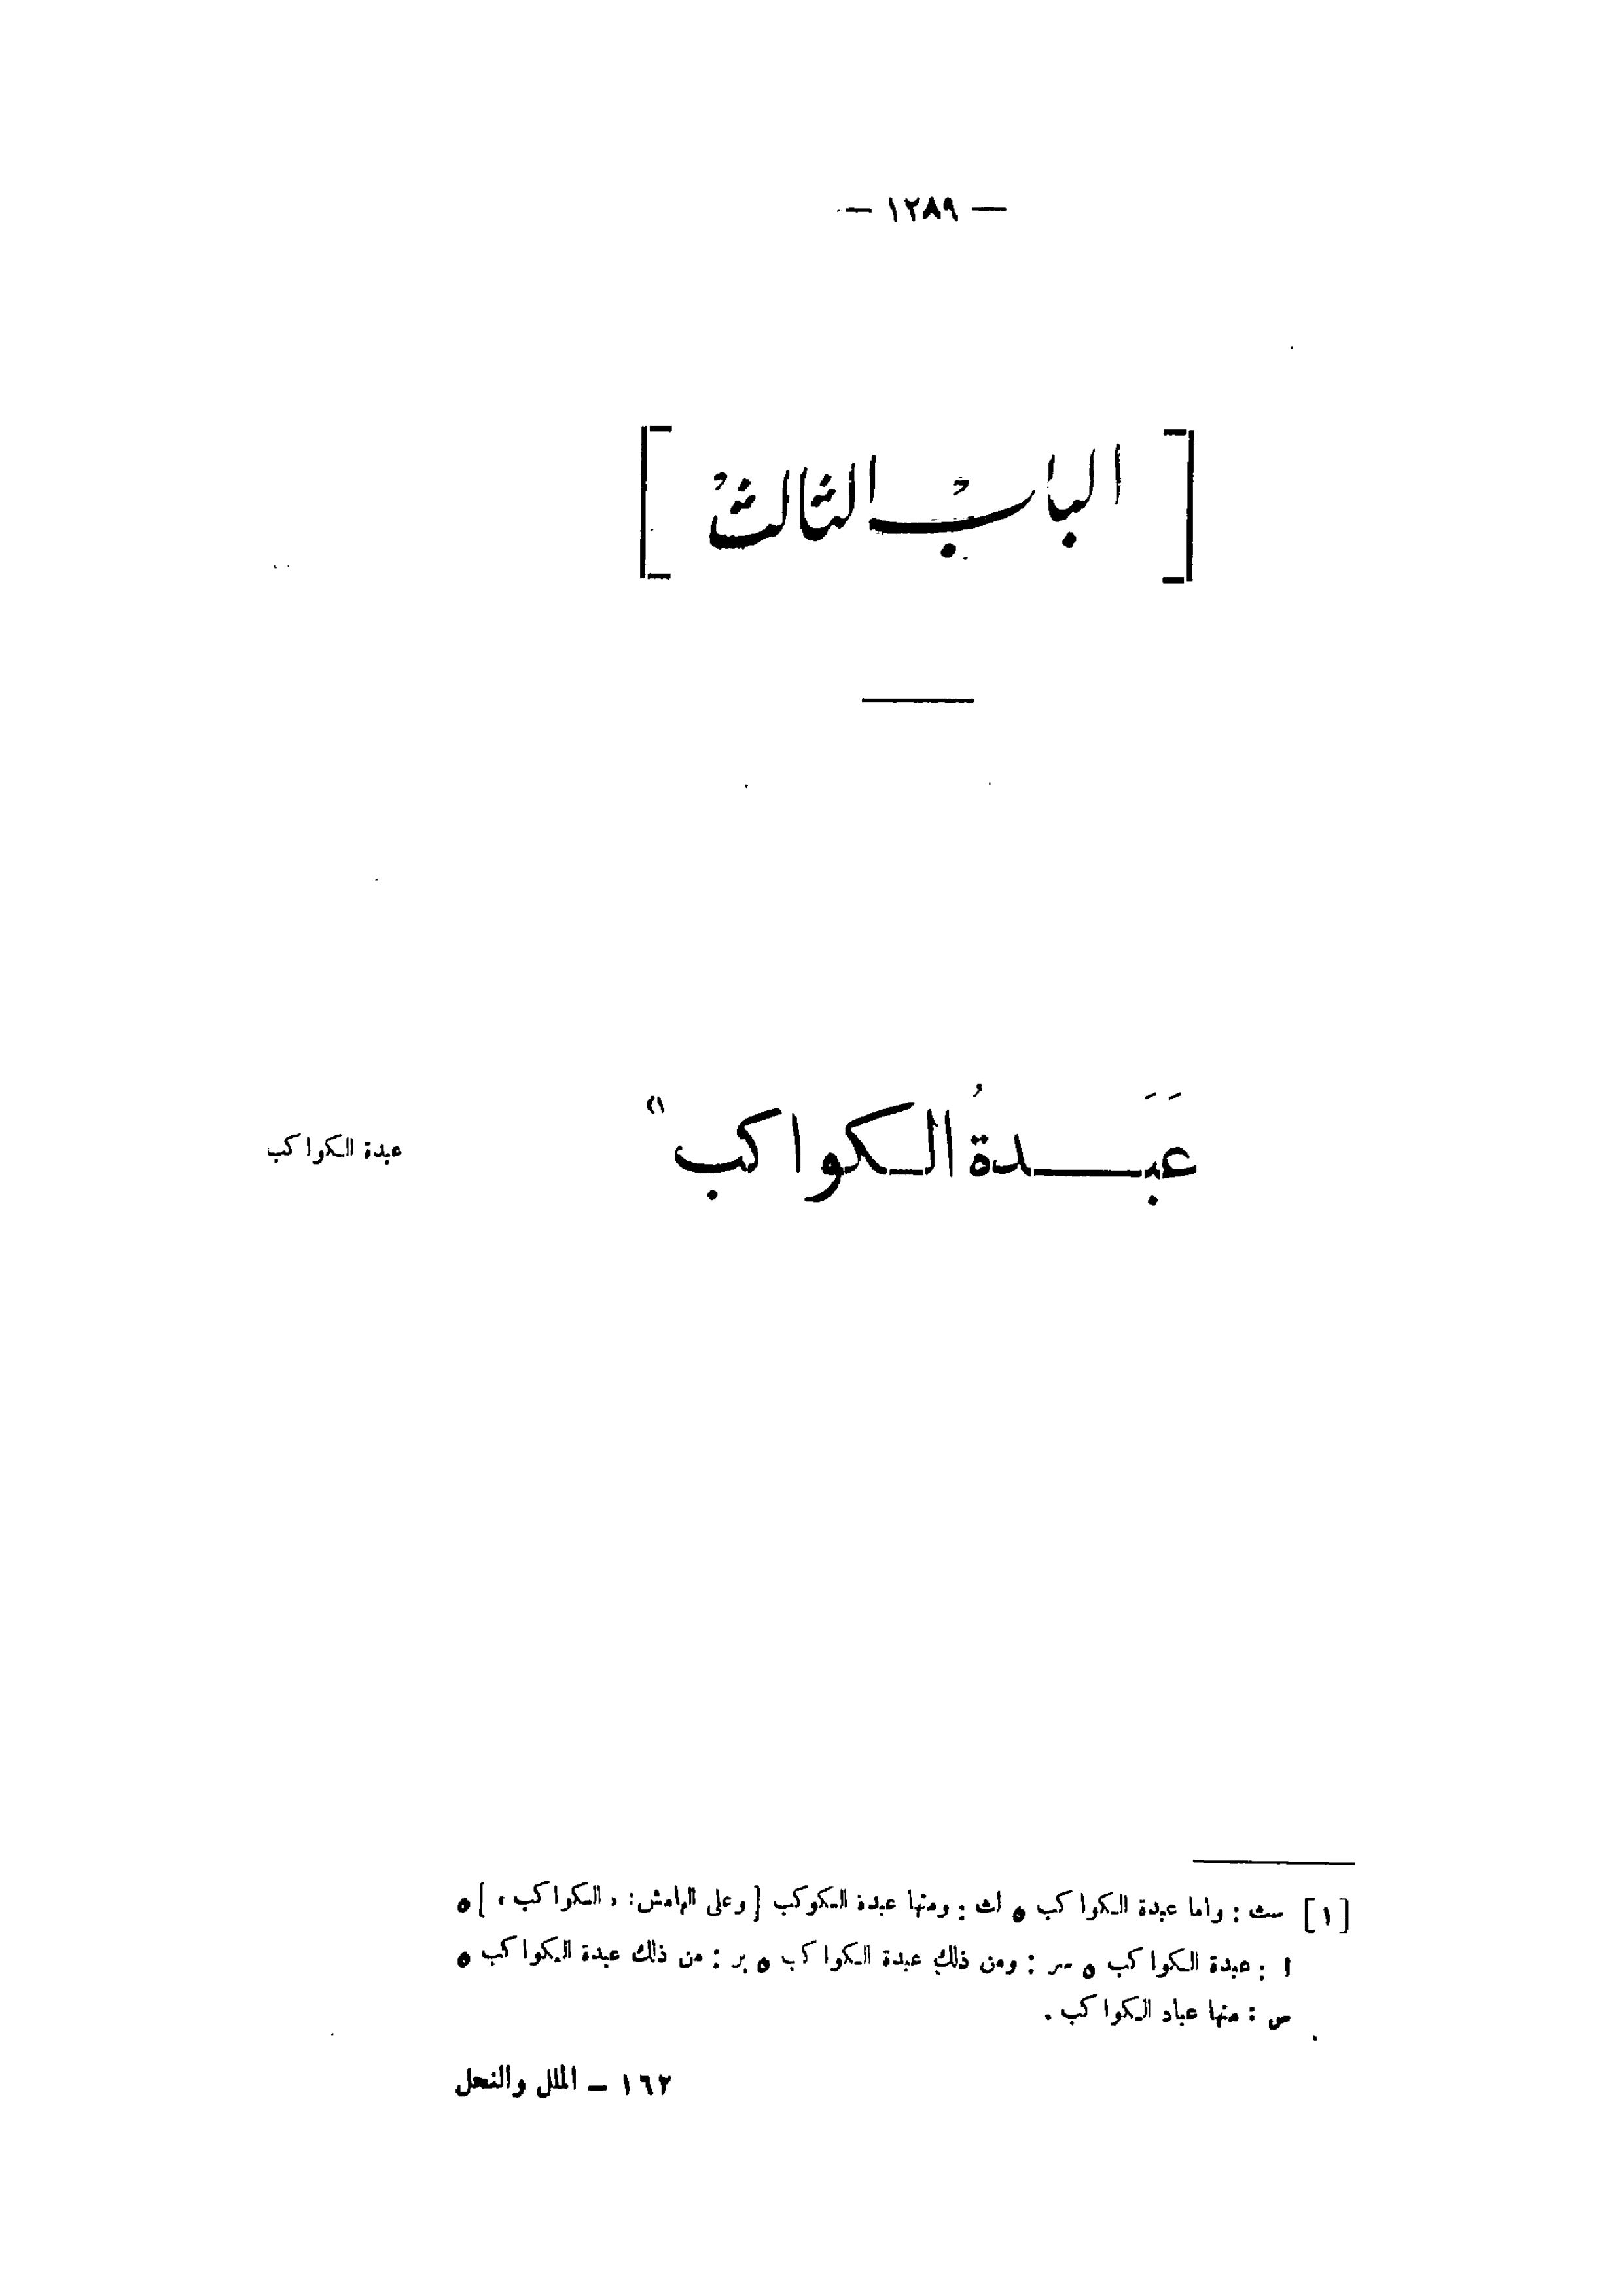 — ١٢٨٩ —
[ البابُ الثالثُ ]
عَبَدةُ الكواكب (١)
عبدة الكواكب
[١] سث : واما عبدة الكواكب ه لث : ومنها عبدة الكوكب [وعلى الهامش: «الكواكب»] ه
ا : عبدة الكواكب ه سر : ومن ذلك عبدة الكواكب ه بر : من ذلك عبدة الكواكب ه
س : منها عباد الكواكب .
١٦٢ – الملل والنحل